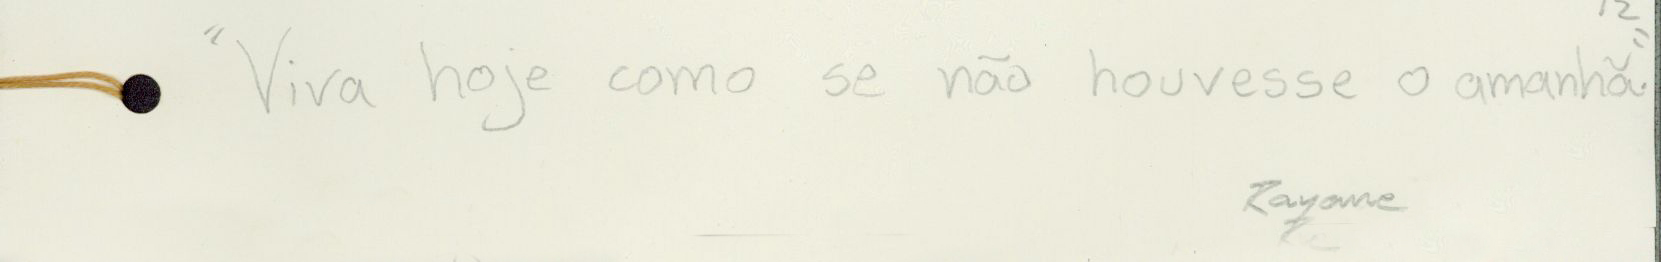 12
"Viva hoje como se não houvesse o amanhã."
Rayane